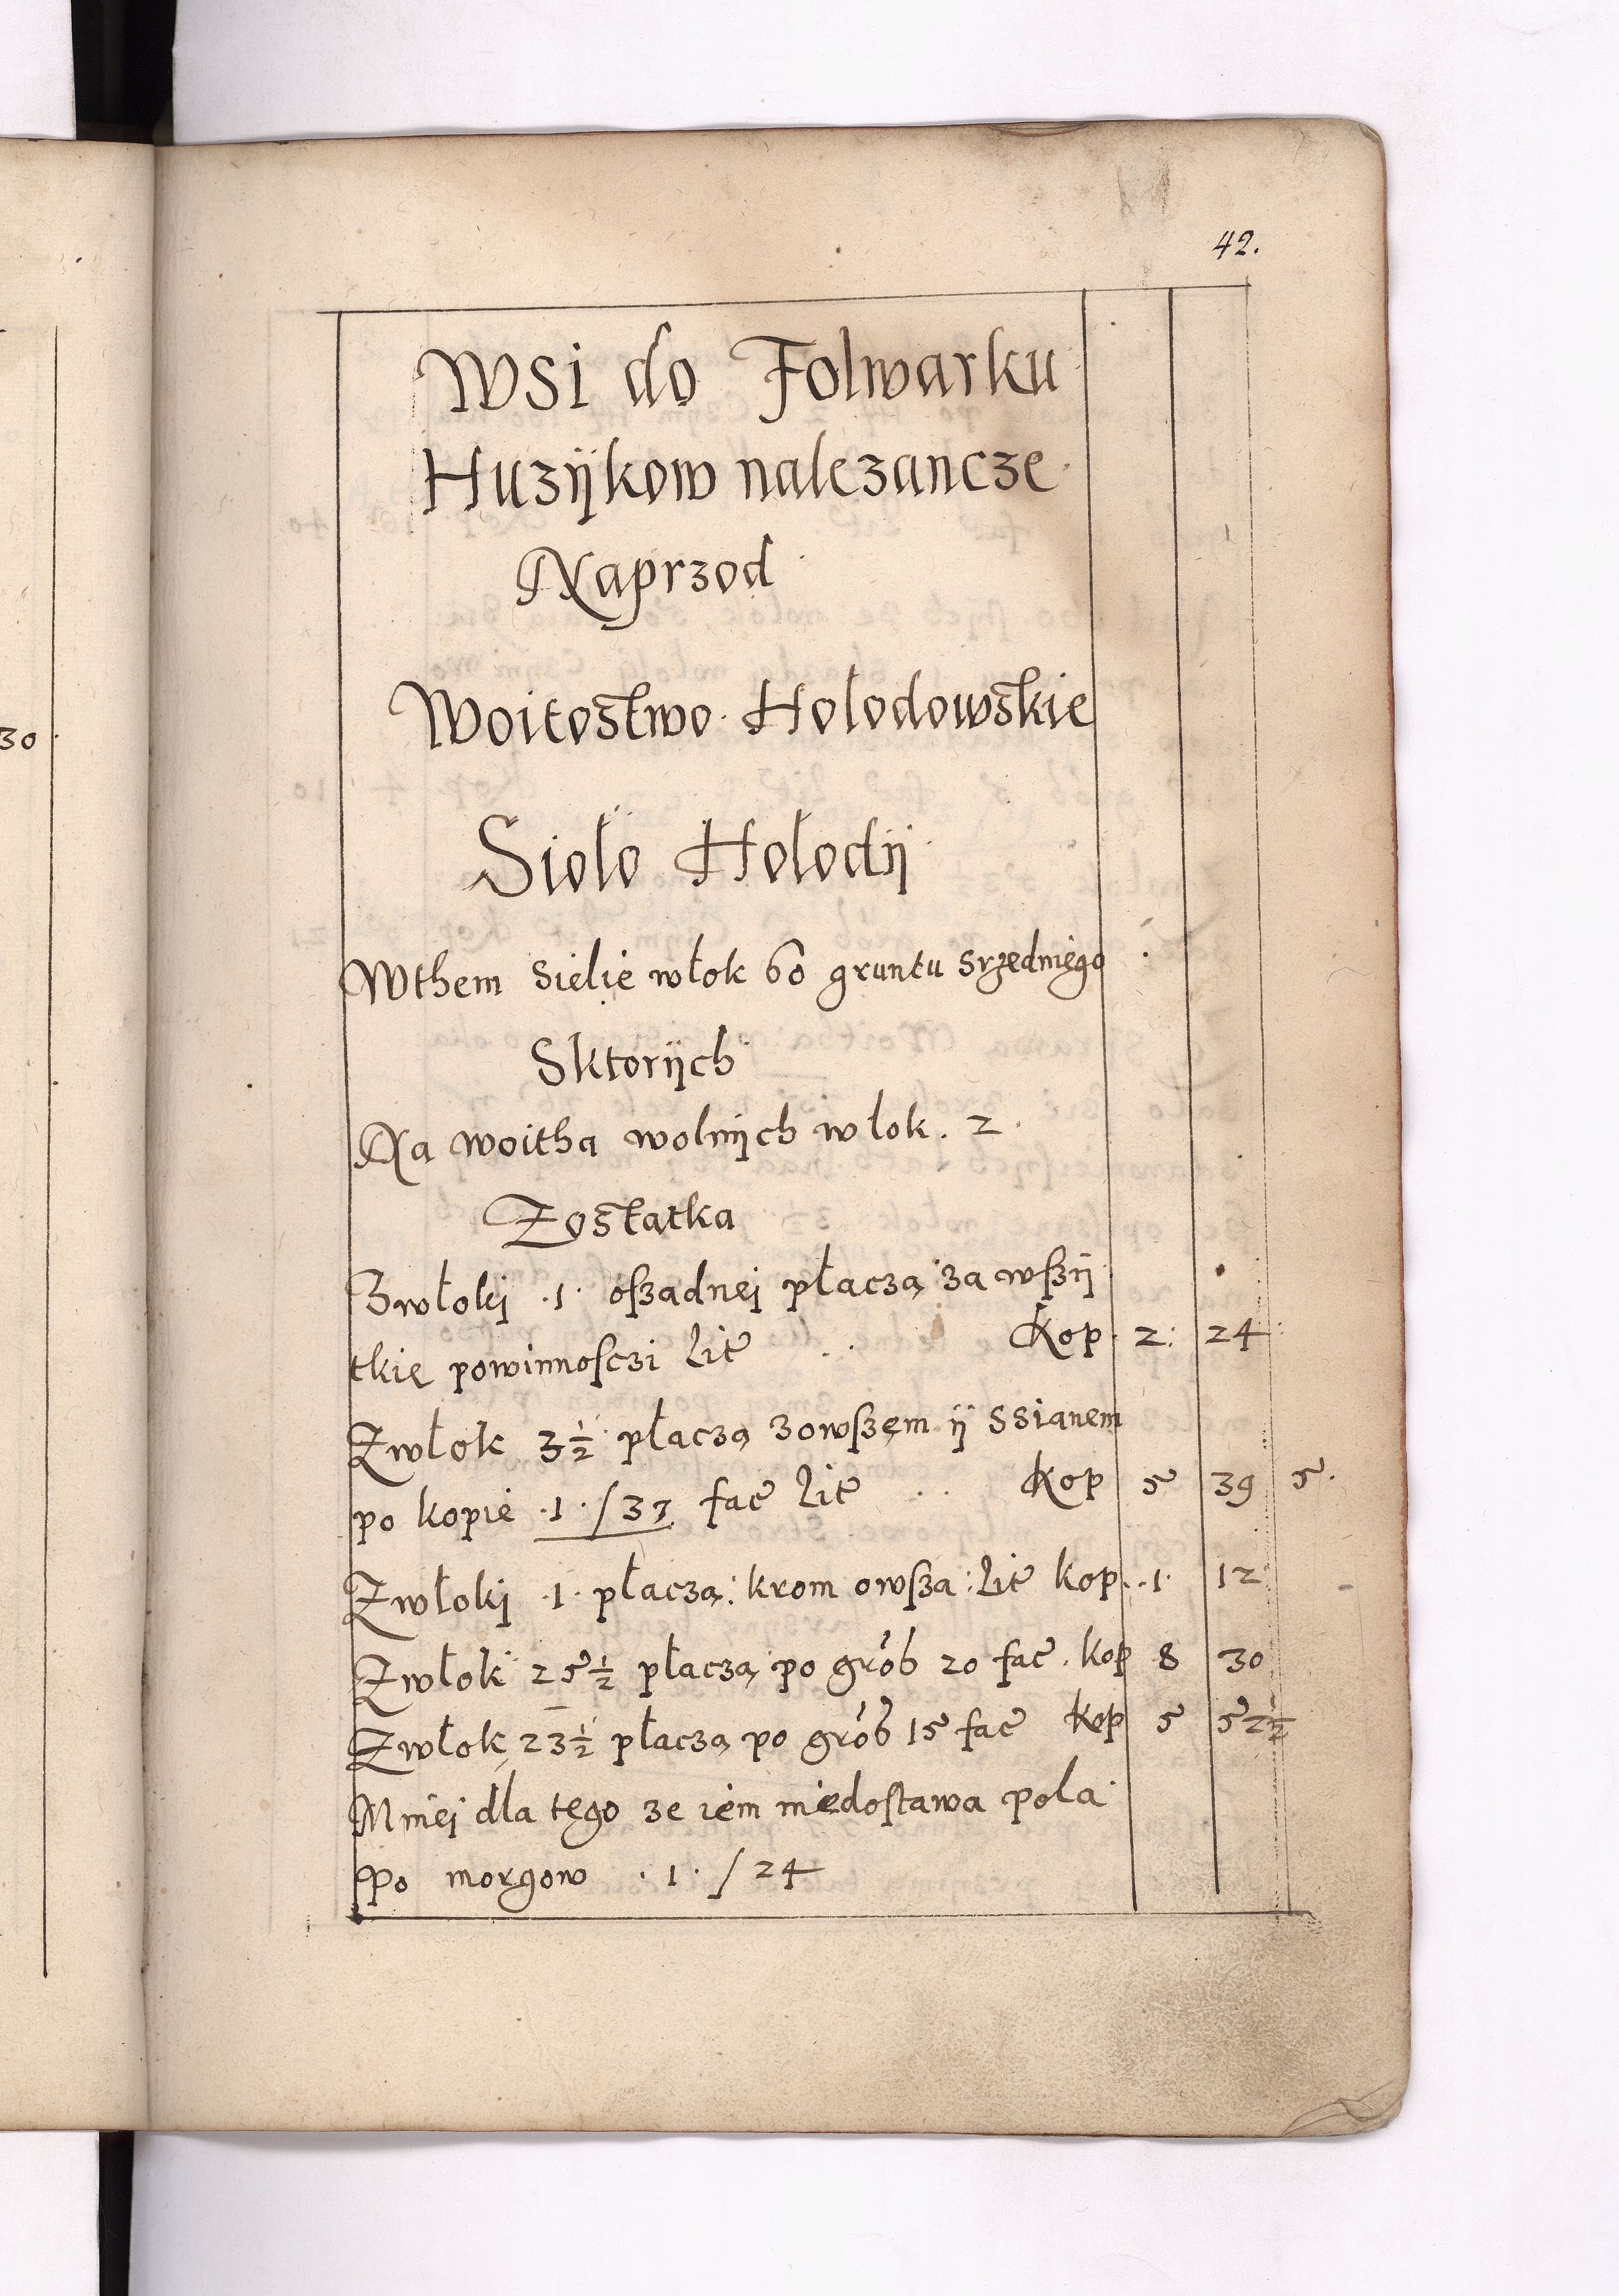 42.
Wsi do Folwarku
Huzÿkow nalezancze
Naprzod
Woitostwo Hołodowskie
Sioło Hołodÿ
Wthem sielie włok 60 gruntu srzedniego
Sktorÿch
Na woitha wolnÿch włok . 2 .
Zostatka
Zwłokj .1. oszadnej płaczą za wszÿ
tkie powinnosczi Lit . . Kop 2: 24
Zwłok 3 1/2 płaczą zowszem ÿ Ssianem
po kopie .1. / 37 fac Lit . . Kop 5 39 5.
Zwłokj .1. płaczą: krom owsza: Lit kop . .1. 12
Zwłok 25 1/2 płaczą po grób 20 fac . kop 8 30
Zwłok 23 1/2 płaczą po grób 15 fac kop 5 52 1/2
Mniej dla tego ze iem niedostawa pola
Po morgow . 1 . / 24
30